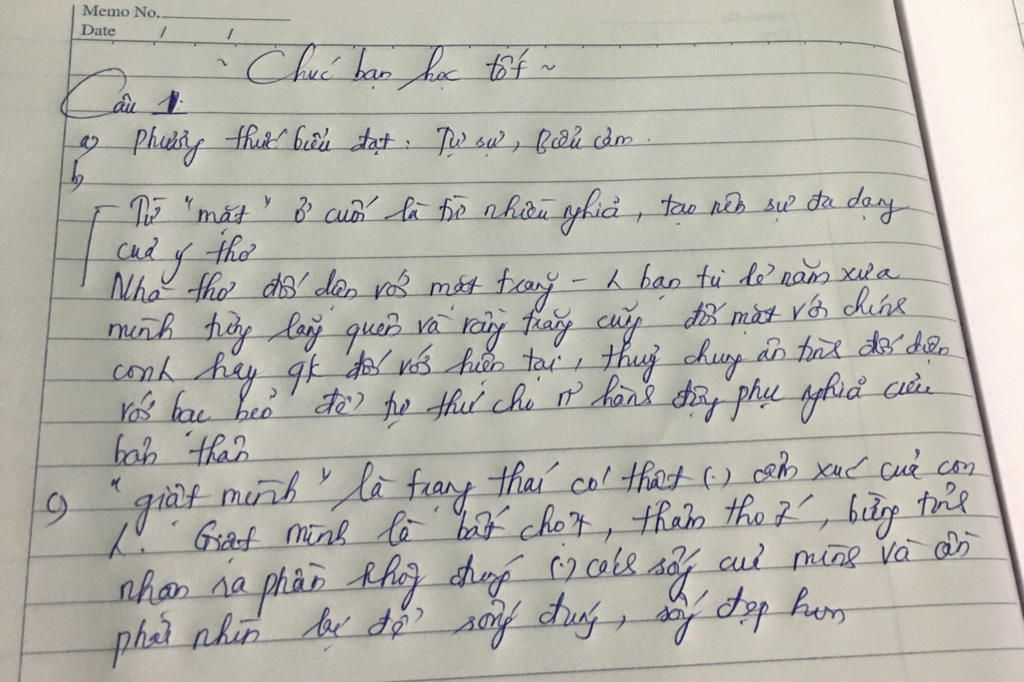 Memo No.
Date / /
~ Chúc bạn học tốt ~
Câu 1:
a) Phương thức biểu đạt: Tự sự, Biểu cảm.
b)
Từ "mặt" ở cuối là từ nhiều nghĩa, tạo nên sự đa dạng
của ý thơ
Nhà thơ đối diện với mặt trăng - bạn tri kỉ năm xưa
mình từng lãng quên và vầng trăng cũng đối mặt với chính
con hay qk đối với hiện tại, thuỷ chung ân tình đối diện
với bạc bẽo để tự thú hành động phụ nghĩa của
bản thân
c) "giật mình" là trạng thái có thật (.) cảm xúc của con
Giật mình là bất chợt, thản bừng tỉnh
nhận ra phần không đúng (.) cách sống của mình và cần
phải nhìn lại để sống đúng, sống đẹp hơn